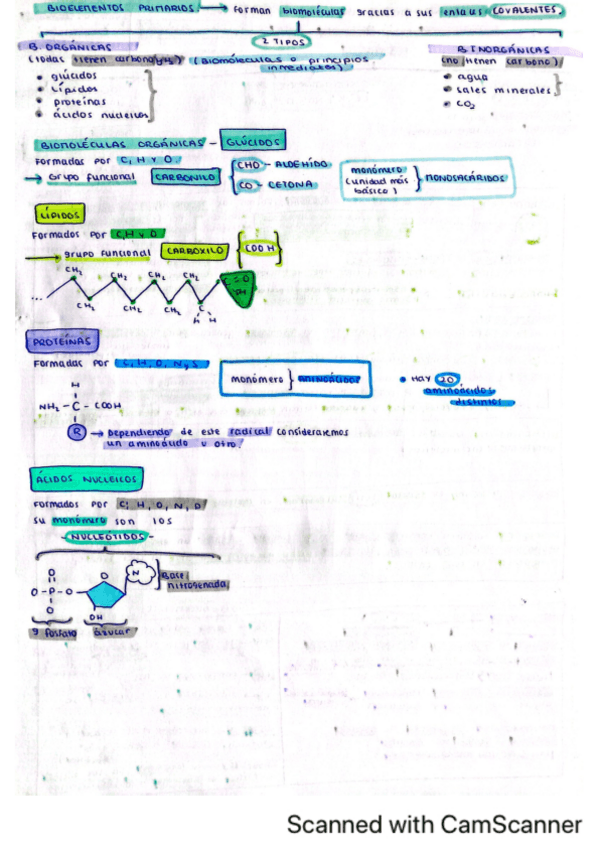 BIOELEMENTOS PRIMARIOS → Forman biomoléculas gracias a sus enlaces COVALENTES.
2 TIPOS
B. ORGÁNICAS
(todas tienen carbono) (Biomoléculas o principios inmediatos)
• glúcidos
• Lípidos
• proteínas
• ácidos nucleicos
B. INORGÁNICAS
(no tienen carbono)
• agua
• sales minerales
• CO2
BIOMOLÉCULAS ORGÁNICAS - GLÚCIDOS
Formadas por C, H Y O.
→ Grupo funcional CARBONILO
CHO - ALDEHÍDO
CO - CETONA
monómero
(unidad más
básico)
MONOSACÁRIDOS
LÍPIDOS
Formados por C, H y O
→ grupo funcional CARBOXILO {COOH}
CH2 CH2 CH2 CH2
... CH2 CH2 CH2 C
H H
PROTEÍNAS
Formadas por C, H, O, N, S
monómero } AMINOÁCIDOS
• HAY 20
aminoácidos
distintos
H
NH2 - C - COOH
R → Dependiendo de este radical consideraremos
un aminoácido u otro.
ÁCIDOS NUCLEICOS
Formados por C, H, O, N,
su monómero son los
- NUCLEÓTIDOS -
O O N Base
nitrogenada
O - P - O
O OH
g fosfato azúcar
Scanned with CamScanner